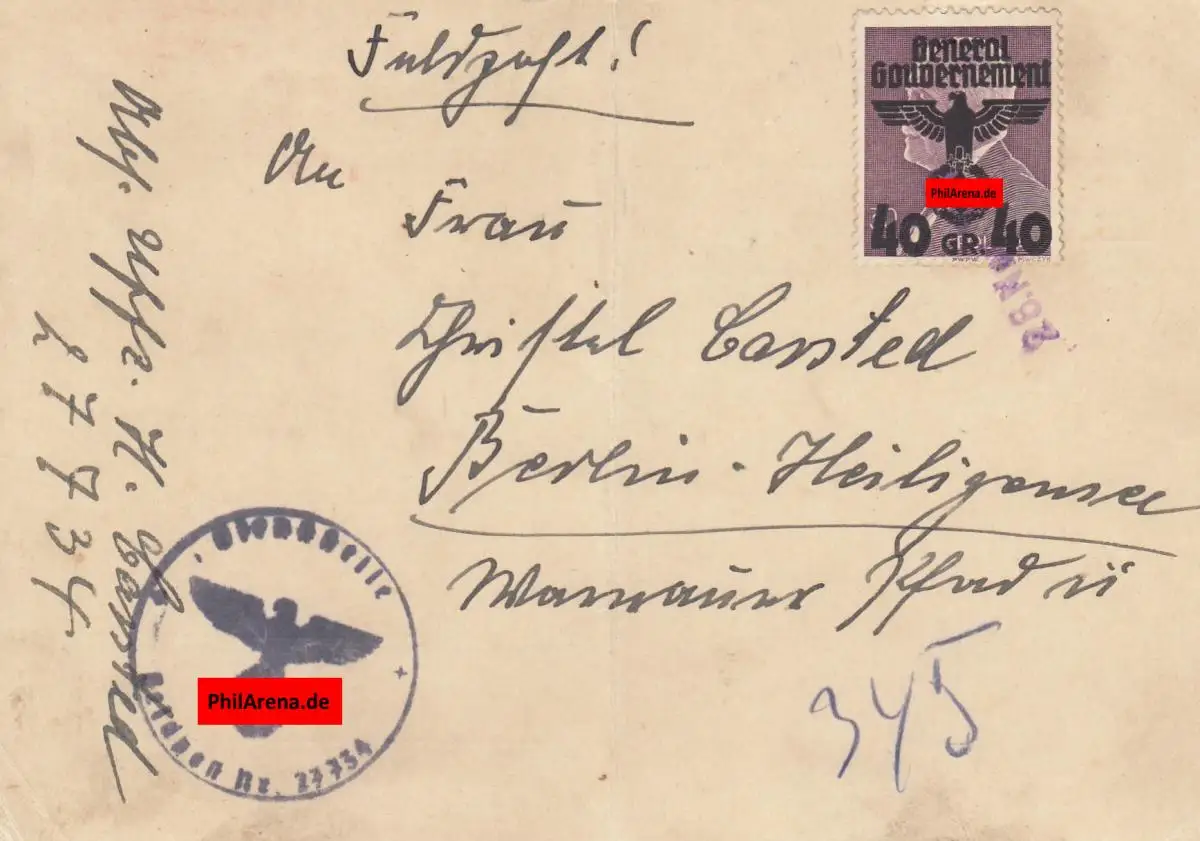 Feldpost!
General
Gouvernement
PhilArena.de
40 GR. 40
An
Frau
Christel Carsted
Berlin-Heiligensee
Pfad
345
Abs. Uffz. H. Carsted
27734
Dienststelle
Feldpost Nr. 27734
PhilArena.de